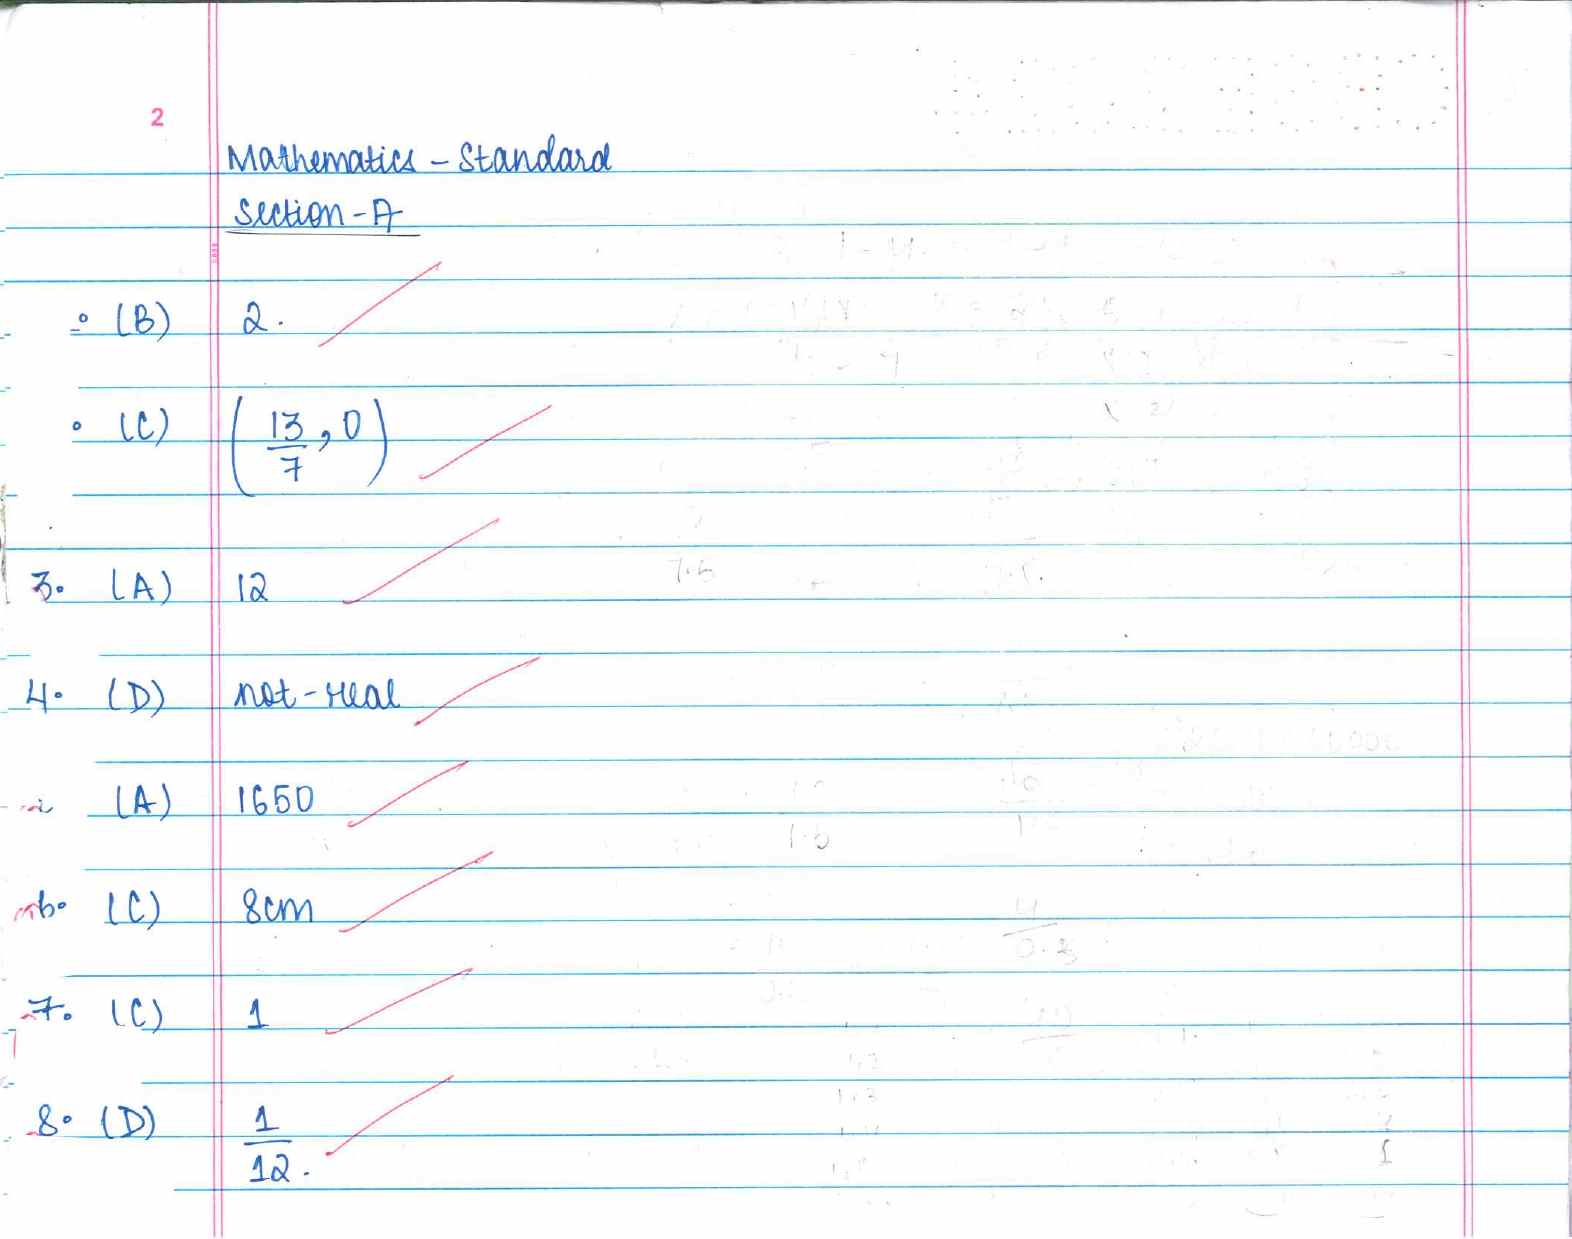 2
Mathematics - Standard
Section - A
(B) 2.
(C) (13/7, 0)
3. (A) 12
4. (D) not-real
(A) 1650
6. (C) 8cm
7. (C) 1
8. (D) 1/12.